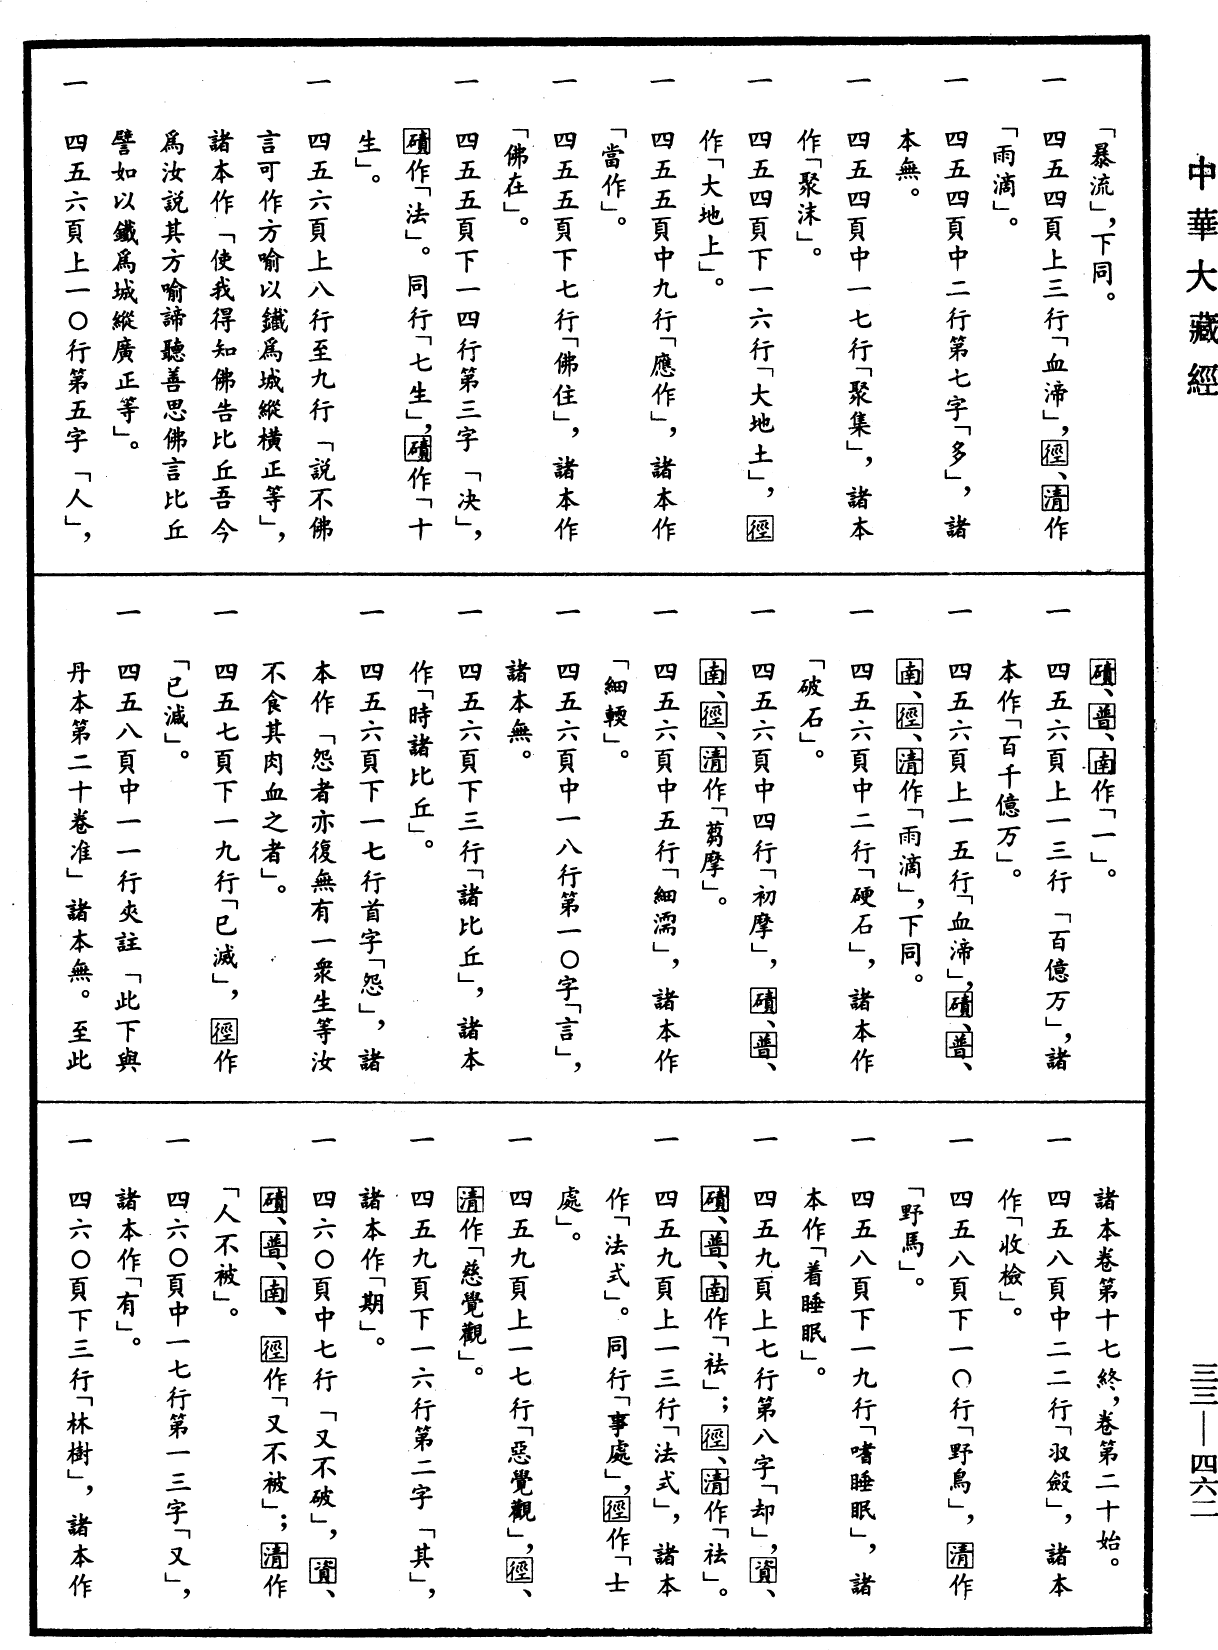 中華大藏經
「暴流」，下同。
一　四五四頁上三行「血渧」，徑、清作
「雨滴」。
一　四五四頁中二行第七字「多」，諸
本無。
一　四五四頁中一七行「聚集」，諸本
作「聚沫」。
一　四五四頁下一六行「大地土」，徑
作「大地上」。
一　四五五頁中九行「應作」，諸本作
「當作」。
一　四五五頁下七行「佛住」，諸本作
「佛在」。
一　四五五頁下一四行第三字「决」，
磧作「法」。同行「七生」，磧作「十
生」。
一　四五六頁上八行至九行「説不佛
言可作方喻以鐵爲城縱橫正等」，
諸本作「使我得知佛告比丘吾今
爲汝説其方喻諦聽善思佛言比丘
譬如以鐵爲城縱廣正等」。
一　四五六頁上一〇行第五字「人」，
磧、普、南作「一」。
一　四五六頁上一三行「百億万」，諸
本作「百千億万」。
一　四五六頁上一五行「血渧」，磧、普、
南、徑、清作「雨滴」，下同。
一　四五六頁中二行「硬石」，諸本作
「破石」。
一　四五六頁中四行「初摩」，磧、普、
南、徑、清作「蒭摩」。
一　四五六頁中五行「細濡」，諸本作
「細輭」。
一　四五六頁中一八行第一〇字「言」，
諸本無。
一　四五六頁下三行「諸比丘」，諸本
作「時諸比丘」。
一　四五六頁下一七行首字「怨」，諸
本作「怨者亦復無有一衆生等汝
不食其肉血之者」。
一　四五七頁下一九行「已滅」，徑作
「已減」。
一　四五八頁中一一行夾註「此下與
丹本第二十卷准」諸本無。至此
諸本卷第十七終，卷第二十始。
一　四五八頁中二二行「収斂」，諸本
作「收檢」。
一　四五八頁下一〇行「野鳥」，清作
「野馬」。
一　四五八頁下一九行「嗜睡眠」，諸
本作「着睡眠」。
一　四五九頁上七行第八字「却」，資、
磧、普、南作「袪」；徑、清作「祛」。
一　四五九頁上一三行「法式」，諸本
作「法式」。同行「事處」，徑作「士
處」。
一　四五九頁上一七行「惡覺觀」，徑、
清作「慈覺觀」。
一　四五九頁下一六行第二字「其」，
諸本作「期」。
一　四六〇頁中七行「又不破」，資、
磧、普、南、徑作「又不被」；清作
「人不被」。
一　四六〇頁中一七行第一三字「又」，
諸本作「有」。
一　四六〇頁下三行「林樹」，諸本作
三三—四六二